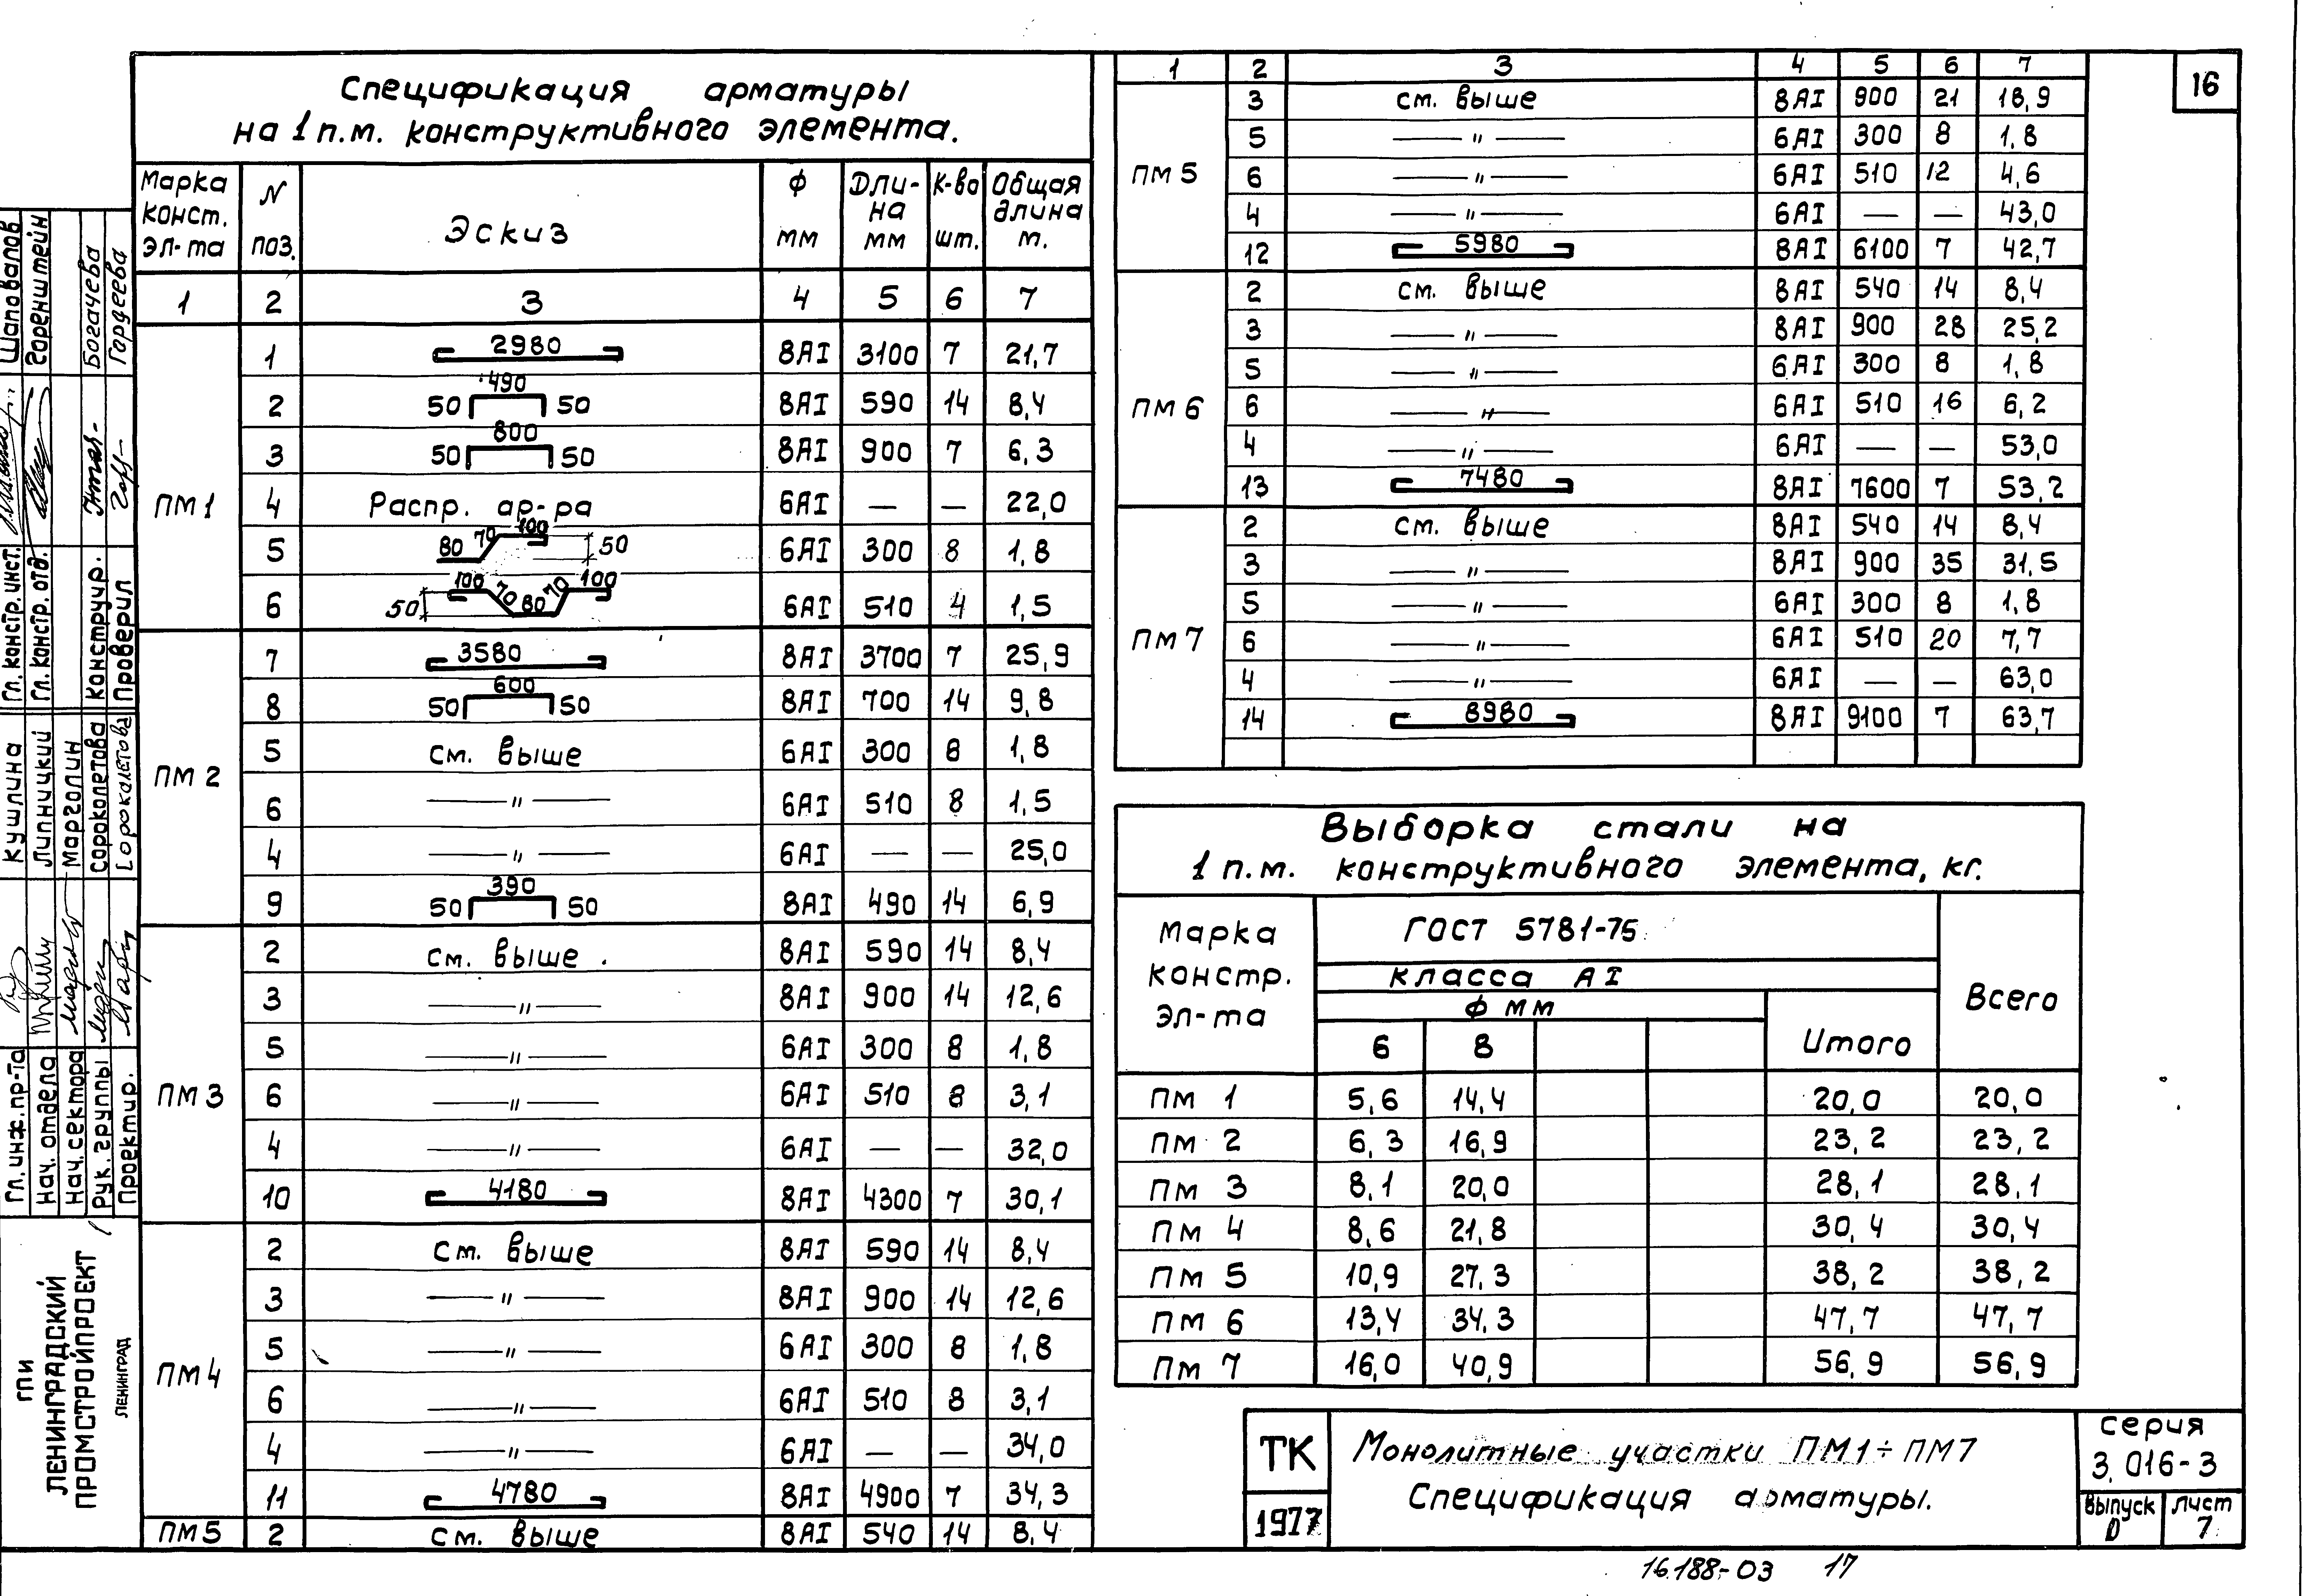 Спецификация арматуры
на 1 п.м. конструктивного элемента.
Марка конст. эл-та | N поз. | Эскиз | Ф мм | Дли-на мм | К-во шт. | Общая длина м.
1 | 2 | 3 | 4 | 5 | 6 | 7
ПМ1
1 | 2980 | 8АI | 3100 | 7 | 21,7
2 | 50 490 50 | 8АI | 590 | 14 | 8,4
3 | 50 800 50 | 8АI | 900 | 7 | 6,3
4 | Распр. ар-ра | 6АI | — | — | 22,0
5 | 80 70 100 50 | 6АI | 300 | 8 | 1,8
6 | 50 100 70 80 70 100 | 6АI | 510 | 4 | 1,5
ПМ2
7 | 3580 | 8АI | 3700 | 7 | 25,9
8 | 50 600 50 | 8АI | 700 | 14 | 9,8
5 | см. выше | 6АI | 300 | 8 | 1,8
6 | —〃— | 6АI | 510 | 8 | 1,5
4 | —〃— | 6АI | — | — | 25,0
9 | 50 390 50 | 8АI | 490 | 14 | 6,9
ПМ3
2 | см. выше . | 8АI | 590 | 14 | 8,4
3 | —〃— | 8АI | 900 | 14 | 12,6
5 | —〃— | 6АI | 300 | 8 | 1,8
6 | —〃— | 6АI | 510 | 8 | 3,1
4 | —〃— | 6АI | — | — | 32,0
10 | 4180 | 8АI | 4300 | 7 | 30,1
ПМ4
2 | см. выше | 8АI | 590 | 14 | 8,4
3 | —〃— | 8АI | 900 | 14 | 12,6
5 | —〃— | 6АI | 300 | 8 | 1,8
6 | —〃— | 6АI | 510 | 8 | 3,1
4 | —〃— | 6АI | — | — | 34,0
11 | 4780 | 8АI | 4900 | 7 | 34,3
ПМ5 | 2 | см. выше | 8АI | 540 | 14 | 8,4
1 | 2 | 3 | 4 | 5 | 6 | 7
16
ПМ5
3 | см. выше | 8АI | 900 | 21 | 18,9
5 | —〃— | 6АI | 300 | 8 | 1,8
6 | —〃— | 6АI | 510 | 12 | 4,6
4 | —〃— | 6АI | — | — | 43,0
12 | 5980 | 8АI | 6100 | 7 | 42,7
ПМ6
2 | см. выше | 8АI | 540 | 14 | 8,4
3 | —〃— | 8АI | 900 | 28 | 25,2
5 | —〃— | 6АI | 300 | 8 | 1,8
6 | —〃— | 6АI | 510 | 16 | 6,2
4 | —〃— | 6АI | — | — | 53,0
13 | 7480 | 8АI | 7600 | 7 | 53,2
ПМ7
2 | см. выше | 8АI | 540 | 14 | 8,4
3 | —〃— | 8АI | 900 | 35 | 31,5
5 | —〃— | 6АI | 300 | 8 | 1,8
6 | —〃— | 6АI | 510 | 20 | 7,7
4 | —〃— | 6АI | — | — | 63,0
14 | 8980 | 8АI | 9100 | 7 | 63,7
Выборка стали на
1 п.м. конструктивного элемента, кг.
Марка констр. эл-та | ГОСТ 5781-75 | Всего
класса АI
Ф мм | Итого
6 | 8
ПМ 1 | 5,6 | 14,4 | 20,0 | 20,0
ПМ 2 | 6,3 | 16,9 | 23,2 | 23,2
ПМ 3 | 8,1 | 20,0 | 28,1 | 28,1
ПМ 4 | 8,6 | 21,8 | 30,4 | 30,4
ПМ 5 | 10,9 | 27,3 | 38,2 | 38,2
ПМ 6 | 13,4 | 34,3 | 47,7 | 47,7
ПМ 7 | 16,0 | 40,9 | 56,9 | 56,9
ТК
1977
Монолитные участки ПМ1÷ПМ7
Спецификация арматуры.
серия
3.016-3
выпуск 0
лист 7
16188-03 17
Гл. констр. инст. Шаповалов
Гл. констр. отд. Горенштейн
Конструир. Богачева
Проверил Гордеева
Гл. инж. пр-та Кушлина
Нач. отдела Липницкий
Нач. сектора Марголин
Рук. группы Сороколетова
Проектир. Сороколетова
ГПИ
ЛЕНИНГРАДСКИЙ
ПРОМСТРОЙПРОЕКТ
ЛЕНИНГРАД